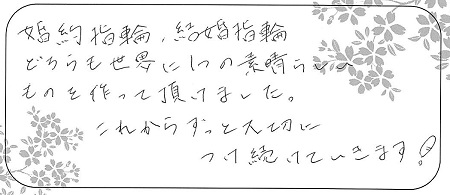 婚約指輪、結婚指輪
どちらも世界に1つの素晴らしい
ものを作って頂けました。
これからずっと大切に
つけ続けていきます!